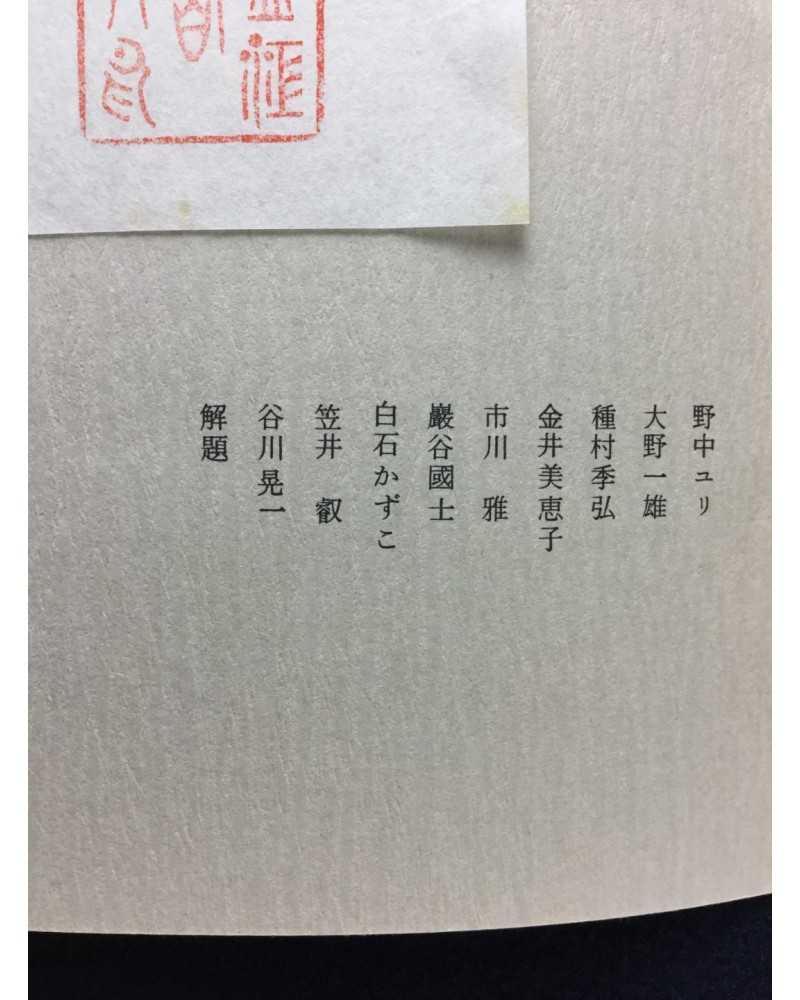 野中ユリ
大野一雄
種村季弘
金井美恵子
市川　雅
巖谷國士
白石かずこ
笠井　叡
谷川晃一
解題